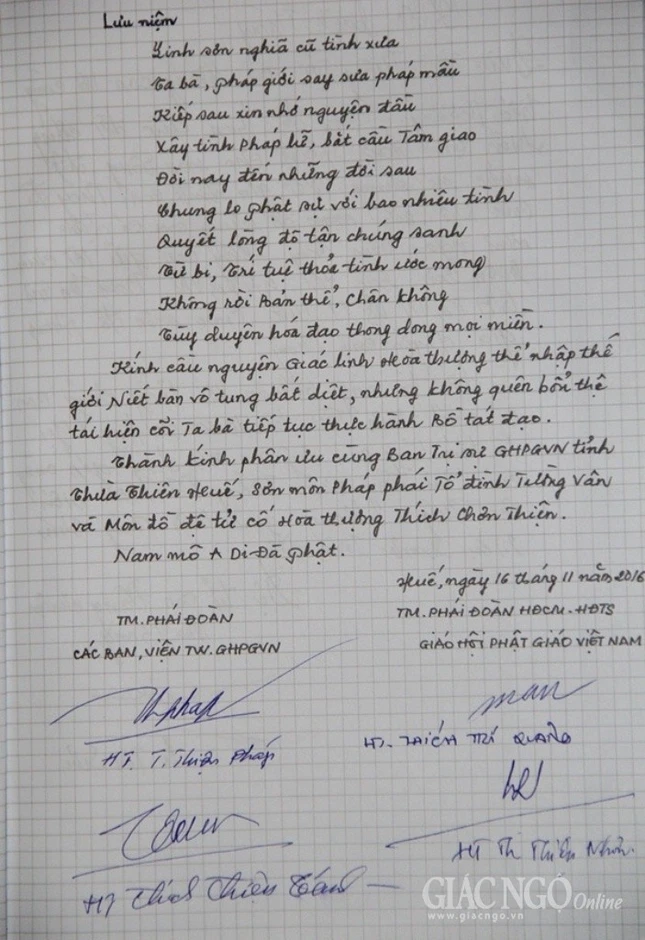 Lưu niệm
Linh sơn nghĩa cũ tình xưa
Ta bà, pháp giới say sưa pháp mầu
Kiếp sau xin nhớ nguyện đầu
Xây tình Pháp lữ, bắt cầu Tâm giao
Đời nay đến những đời sau
Chung lo Phật sự với bao nhiêu tình
Quyết lòng độ tận chúng sanh
Từ bi, Trí tuệ thỏa tình ước mong
Không rời Bản thể, Chân không
Tùy duyên hoá đạo thong dong mọi miền.
Kính cầu nguyện Giác linh Hòa thượng thể nhập thế
giới Niết bàn vô tung bất diệt, nhưng không quên bổn thệ
tái hiện cõi Ta bà tiếp tục thực hành Bồ tát đạo.
Thành kính phân ưu cùng Ban Trị sự GHPGVN tỉnh
Thừa Thiên Huế, Sơn môn Pháp phái Tổ đình Tường Vân
và Môn đồ đệ tử cố Hoà thượng Thích Chơn Thiện.
Nam mô A Di Đà Phật.
Huế, ngày 16 tháng 11 năm 2016
TM. PHÁI ĐOÀN
CÁC BAN, VIỆN TW. GHPGVN
TM. PHÁI ĐOÀN HĐCM - HĐTS
GIÁO HỘI PHẬT GIÁO VIỆT NAM
HT. T. Thiện Pháp
HT. THÍCH TRÍ QUẢNG
HT Thích Thiện Tánh
HT Th Thiện Nhơn
GIÁC NGỘ Online
www.giacngo.vn